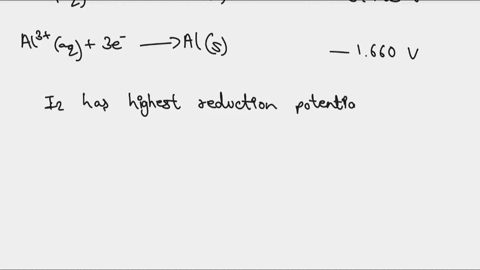 Al³⁺(aq) + 3e⁻ ⟶ Al(s) — 1.660 V
I₂ has highest reduction potentio